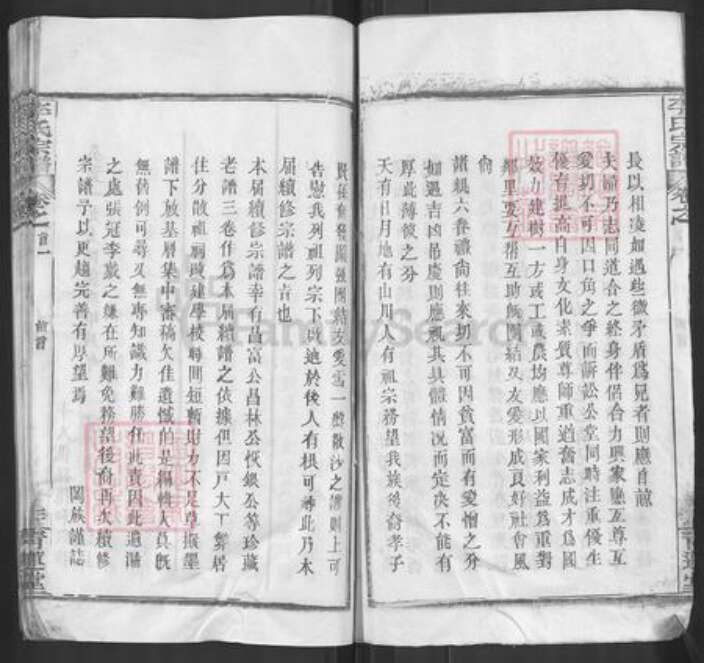 長以相凌如遇些微矛盾為兄者則應自諒
夫婦乃志同道合之終身伴侶合力興家應互尊互
愛切不可因口角之爭而訴訟公堂同時注重優生
優育提高自身文化素質尊師重道奮志成才為國
效力建樹一方或工或農均應以國家利益為重對
鄰里要互幫互助無團結友愛形成良好社會風
尚
諸親六眷禮尚往來切不可因貧富而有愛憎之分
如遇吉凶吊慶則應視其具體情況而定決不能有
厚此薄彼之分
天有日月地有山川人有祖宗務望我族後裔孝子
賢孫奮發圖強團結友愛雪一盤散沙之譏則上可
告慰我列祖列宗下啟迪於後人有根可尋此乃本
屆續修宗譜之旨也
本屆續修宗譜幸有昌富公昌林公恢銀公等珍藏
老譜三卷作為本屆續譜之依據但因戶大丁繁居
住分散祖祠改建學校聯間短暫財力不足草擬墨
譜下放基層集中審稿欠佳遺憾的是編輯人員既
無舊例可尋又無專知識力難勝任此責因此遺漏
之處張冠李戴之嫌在所難免務望後裔再次續修
宗譜予以更趨完善有厚望焉
闔族謹誌
李氏宗譜
卷之首
李氏宗譜
卷之首
FamilySearch